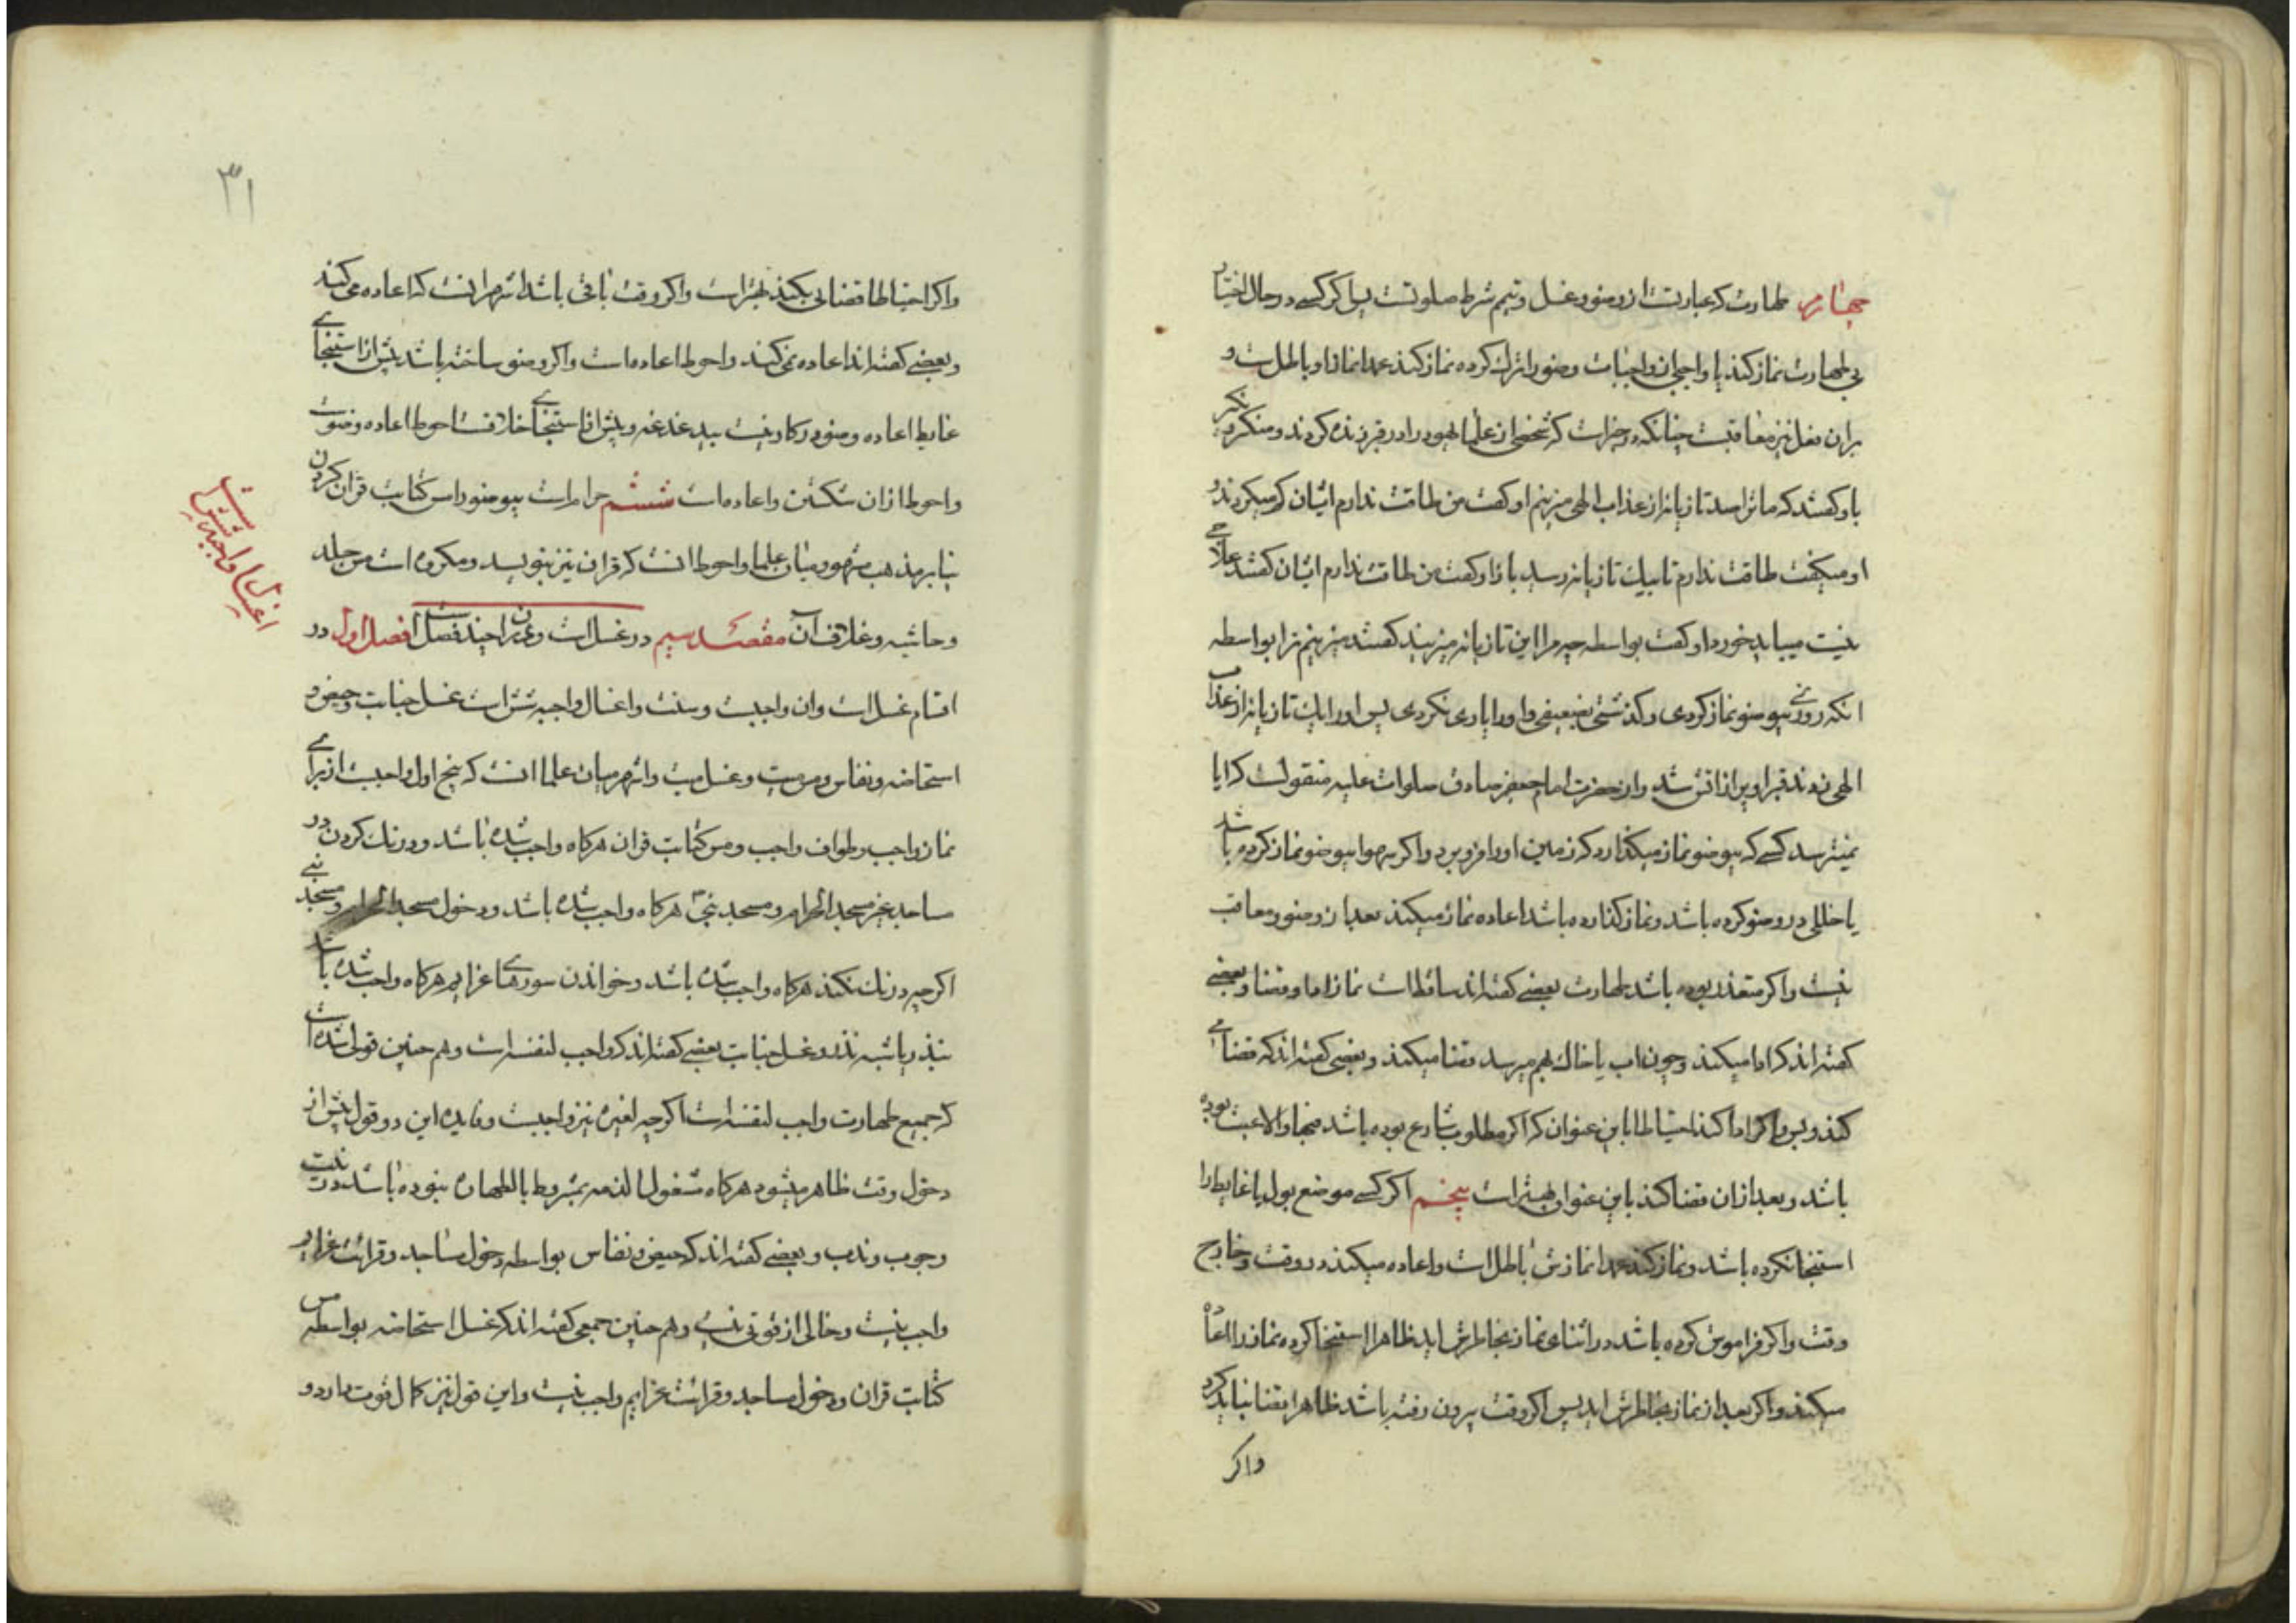 چهارم طهارت که عبارتست از وضو و غسل و تیمم شرط صلوتست پس اگر کسے در حال اختیار
بی طهارت نماز کند یا واجبی از واجبات وضو را ترک کرده نماز کند عمدا نماز او باطلست و
بران فعل نیز معاقبست چنانکه در خبراست که شخصی از علما یهود را در قبر زنده کردند و منکر و نکیر
باو گفتند که ما ترا صد تازیانه از عذاب الهی میزنیم او گفت من طاقت ندارم ایشان کم میکردند و
او میگفت طاقت ندارم تا بیک تازیانه رسید باز او گفت من طاقت ندارم ایشان گفتند علاجے
نیست میباید خورد او گفت بواسطه چه مرا این تازیانه میزنید گفتند میزنیم ترا بواسطه
انکه روزے بیوضو نماز کردی و گذشتی بضعیفی و او را یاری نکردی پس او را یک تازیانه از عذاب
الهی زدند قبر او پر از اتش شد و از حضرت امام جعفر صادق صلوات علیه منقولست که ایا
نمیترسد کسے که بیوضو نماز میگذارد که زمین او را فرو برد و اگر سهوا بیوضو نماز کرده باشد
یا خللی در وضو کرده باشد و نماز گذارده باشد اعاده نماز میکند بعد از وضو و معاقب
نیست و اگر متعذر بوده باشد طهارت بعضے گفته اند ساقط است نماز اداو قضا و بعضے
گفته اند که ادا میکند و چون اب یا خاک بهم میرسد قضا میکند و بعضی گفته اند که قضا مے
کند و بس و اگر ادا کند احتیاطا باین عنوان که اگر مطلوب شارع بوده باشد فبها و الا عبث بوده
باشد و بعد از ان قضا کند باین عنوان بهتر است پنجم اگر کسے موضع بول یا غایط را
استنجا نکرده باشد و نماز کند عمدا نمازش باطل است و اعاده میکند در وقت و خارج
وقت و اگر فراموش کرده باشد در اثنای نماز بخاطرش اید ظاهرا استنجا کرده نماز را اعاده
میکند و اگر بعد از نماز بخاطرش اید پس اگر وقت بیرون رفته باشد ظاهرا قضا نباید کرد
واگر
۳۱
واگر احتیاطا قضایی بکند بهتراست واگر وقت باقی باشد اشهر انست که اعاده می کند
و بعضے گفته اند اعاده نمی کند و احوط اعاده است و اگر وضو ساخته باشد پیش از استنجاے
غایط اعاده وضو در کار نیست بیدغدغه و پیش از استنجاے خلافست احوط اعاده وضوست
واحوط ازان شکستن و اعاده است ششم حرام است بیوضو مس کتابت قران کردن
بنا بر مذهب مشهور میان علما و احوط انست که قران نیز ننویسد و مکروه است مس جلد
و حاشیه و غلاف آن مقصد سیم در غسل است و دران چند فصل است فصل اول در
اقسام غسل است وان واجبست و سنت و اغسال واجبه شش است غسل جنابت و حیض و
استحاضه و نفاس و مس میت و غسل میت و اشهر میان علما انست که پنج اول واجبست از براے
نماز واجب و طواف واجب و مس کتابت قران هرگاه واجب شده باشد و درنک کردن در
مساجد غیر مسجد الحرام و مسجد نبی هرگاه واجب شده باشد و دخول مسجد الحرام و مسجد نبے
اگرچه درنک نکند هرگاه واجب شده باشد و خواندن سورهاے عزایم هرگاه واجب شده باشد
بنذر یا شبه نذر و غسل جنابت بعضے گفته اند که واجب لنفسه است و هم چنین قولی شده است
که جمیع طهارت واجب لنفسه است اگرچه لغیره نیز واجبست و فایده این دو قول پیش از
دخول وقت ظاهر میشود هرگاه مشغول الذمه بمشروط بالطهاره نبوده باشد در نیت
وجوب و ندب و بعضے گفته اند که حیض و نفاس بواسطه دخول مساجد و قرائت عزایم
واجب نیست و خالی از قوتی نیست و هم چنین جمعی گفته اند که غسل استحاضه بواسطه مس
کتابت قران و دخول مساجد و قرائت عزایم واجب نیست و این قول نیز کمال قوت دارد و
اغسال واجبه شش است